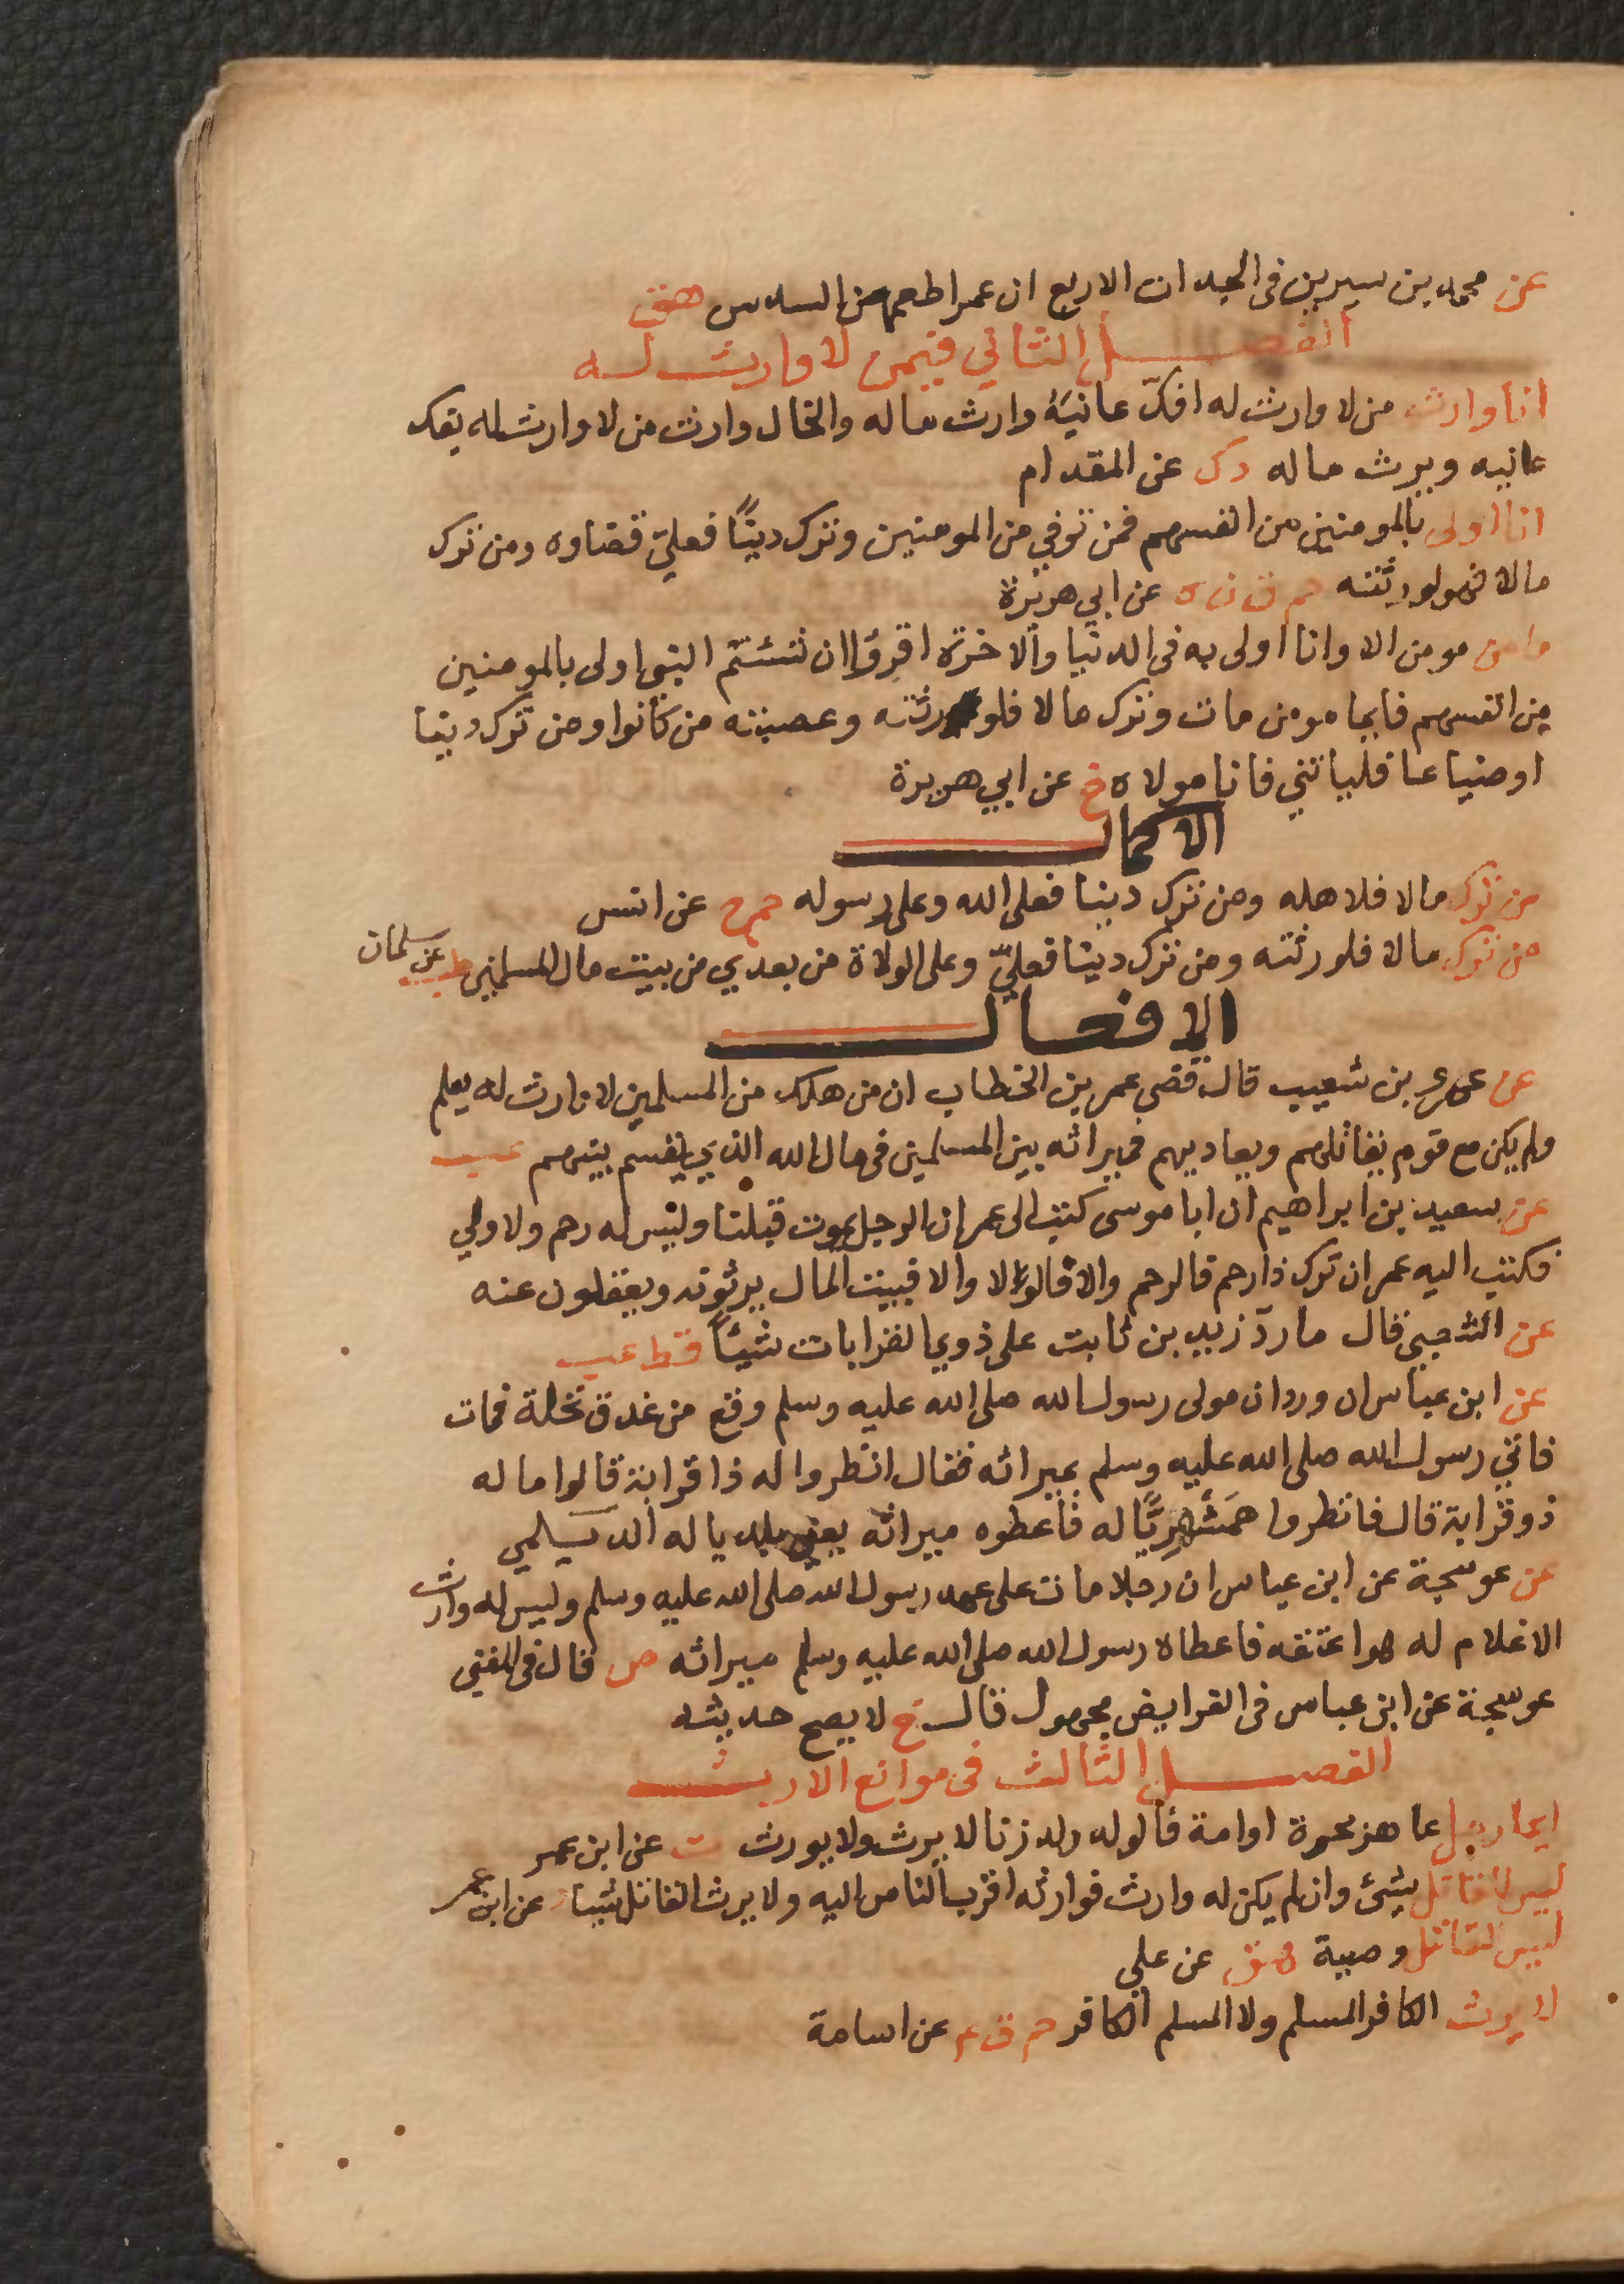 عن محمد بن سيرين في الجدات الاربع ان عمر اطعمهن السدس هق
الفصل الثاني فيمن لا وارث له
انا وارث من لا وارث له افكّ عانيَهُ وارث ماله والخال وارث من لا وارث له يفك
عانيه ويرث ماله د ك عن المقدام
انا اولى بالمومنين من انفسهم فمن توفي من المومنين وترك دينًا فعليّ قضاوه ومن ترك
مالا فهو لورثته حم ق ن ه عن ابي هريرة
ما من مومن الا وانا اولى به في الدنيا والاخرة اقرؤا ان شئتم النبي اولى بالمومنين
من انفسهم فايما مومن مات وترك مالا فلورثته وعصبته من كانوا ومن ترك دينا
او ضياعا فلياتني فانا مولاه خ عن ابي هريرة
الاكمال
من ترك مالا فلاهله ومن ترك دينا فعلى الله وعلى رسوله حم ع عن انس
من ترك مالا فلورثته ومن ترك دينا فعليّ وعلى الولاة من بعدي من بيت مال المسلمين طب عن سلمان
الافعال
عن عمرو بن شعيب قال قضى عمر بن الخطاب ان من هلك من المسلمين لا وارث له يعلم
ولم يكن مع قوم يقاتلهم ويعاديهم فميراثه بين المسلمين في مال الله الذي يقسم بينهم عب
عن سعيد بن ابراهيم ان ابا موسى كتب الى عمر ان الرجل يموت قبلنا وليس له رحم ولا ولي
فكتب اليه عمر ان ترك ذا رحم فالرحم والا فالولا والا فبيت المال يرثونه ويعقلون عنه
عن الشعبي قال ما ردّ زيد بن ثابت على ذوي القرابات شيئًا قط عب
عن ابن عباس ان وردان مولى رسول الله صلى الله عليه وسلم وقع من غدق نخلة فمات
فاتي رسول الله صلى الله عليه وسلم بميراثه فقال انظروا له ذا قرابة قالوا ما له
ذو قرابة قال فانظروا همَشَهرِيًّا له فاعطوه ميراثه يعني بلديا له الديلمي
عن عوسجة عن ابن عباس ان رجلا مات على عهد رسول الله صلى الله عليه وسلم وليس له وارث
الا غلام له هو اعتقه فاعطاه رسول الله صلى الله عليه وسلم ميراثه ص قال في المغني
عوسجة عن ابن عباس في الفرايض مجهول قال خ لا يصح حديثه
الفصل الثالث في موانع الارث
ايما رجل عاهر بحرة او امة فالولد ولد زنا لا يرث ولا يورث ت عن ابن عمر
ليس لقاتل شئ وان لم يكن له وارث فوارثه اقرب الناس اليه ولا يرث القاتل شيا عن ابن عمر
ليس لقاتل وصية هق عن علي
لا يرث الكافر المسلم ولا المسلم الكافر حم ق ع عن اسامة